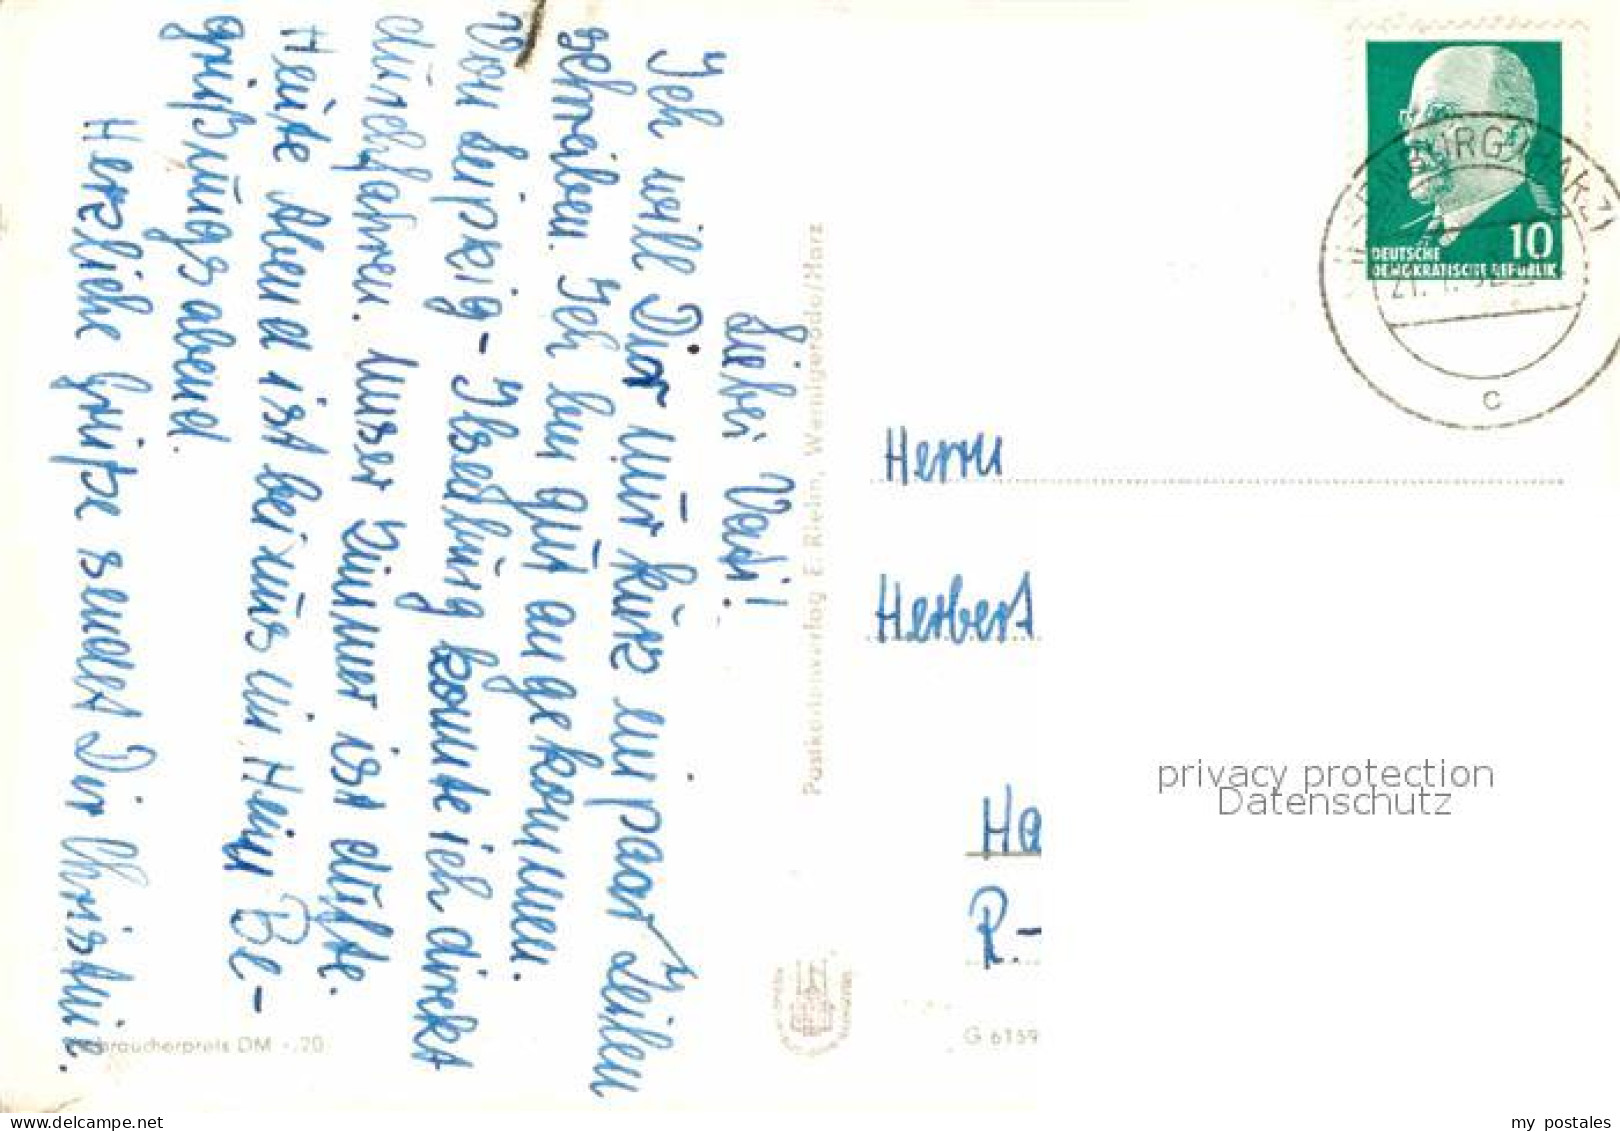 Lieber Vati!
Ich will Dir nur kurz ein paar Zeilen
schreiben. Ich bin gut angekommen.
Von Leipzig - Ilsenburg konnte ich direkt
durchfahren. Unser Zimmer ist dufte.
Heute Abend ist bei uns im Heim Be-
grüßungsabend.
Herzliche Grüße sendet Dir Christine.
Postkartenverlag E. Riehn, Wernigerode/Harz
DEUTSCHE
DEMOKRATISCHE REPUBLIK
10
(HARZ)
c
Herrn
Herbert
Ha
R.-
privacy protection
Datenschutz
Verbraucherpreis DM -,20
G 6159
my postales